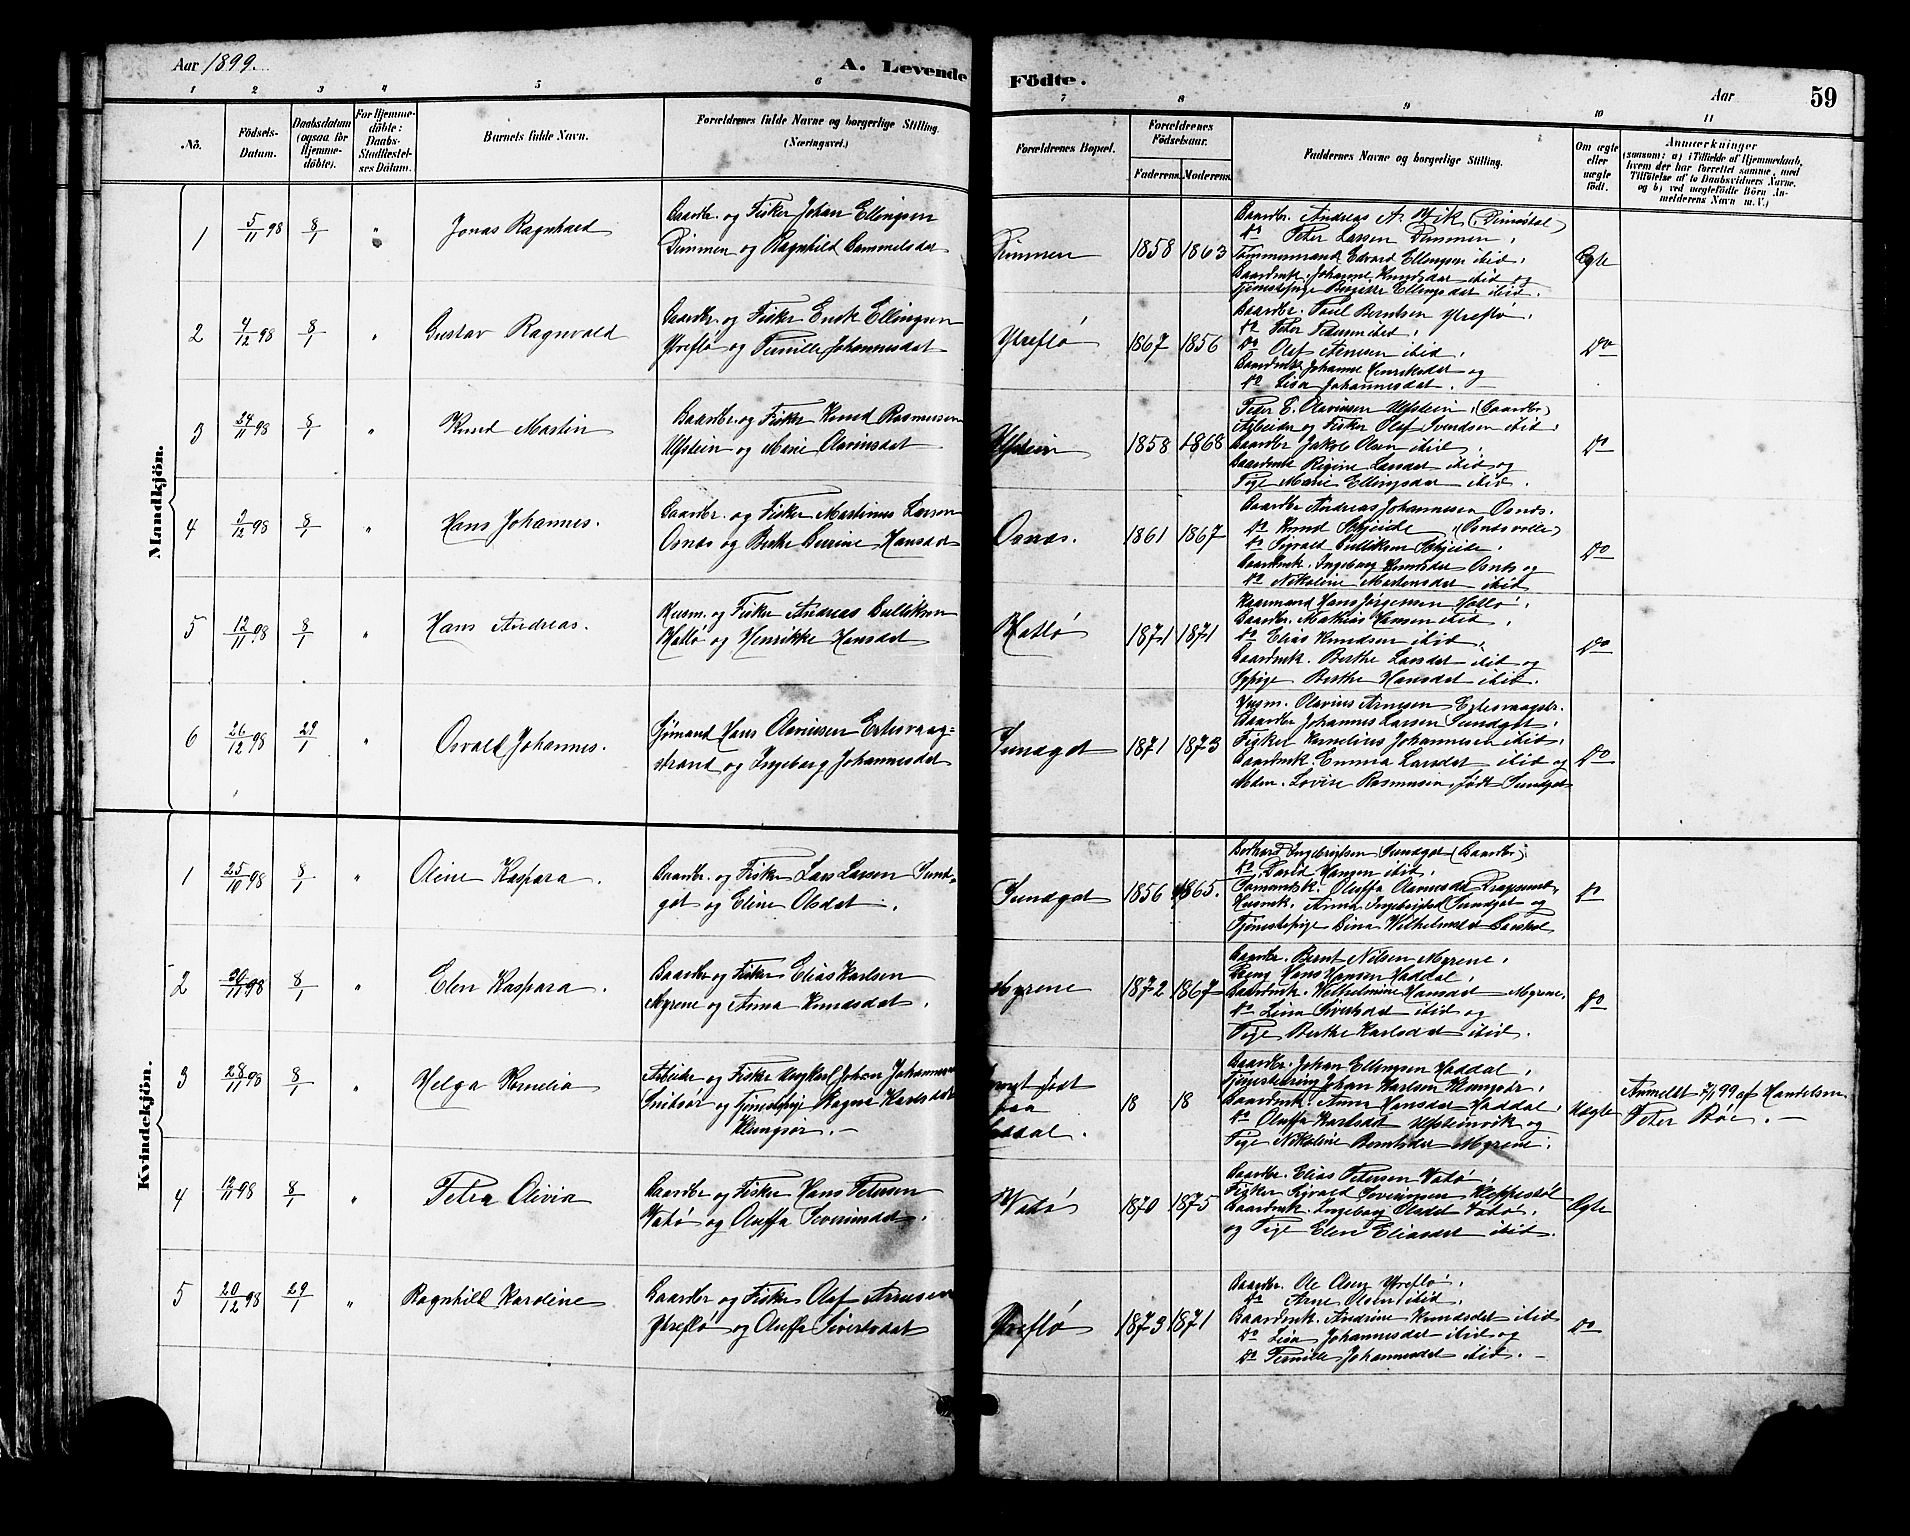 Aar 1899.
A. Levende
Födte.
Aar
59
1 2 3 4 5 6 7 8 9 10 11
No.
Födsels-
Datum.
Daabsdatum
(ogsaa for
Hjemme-
döbte).
For Hjemme-
döbte:
Daabs-
Stadfæstel-
ses Datum.
Barnets fulde Navn.
Forældrenes fulde Navne og borgerlige Stilling.
(Næringsvei.)
Forældrenes Bopæl.
Forældrenes
Födselsaar.
Faderens. Moderens.
Faddernes Navne og borgerlige Stilling.
Om ægte
eller
uægte
födt.
Anmærkninger
(saasom: a) i Tilfælde af Hjemmedaab,
hvem der har forrettet samme, med
Tilföielse af to Daabsvidners Navne,
og b) ved uægtefödte Börn An-
melderens Navn m. V.)
Mandkjön.
1 5/11 98 8/1 " Jonas Ragnhard
Gaardbr. og Fisker Johan Ellingsen
Dimmen og Ragnhild Gammelsdat
Dimmen 1858 1863
Gaardbr. Andreas A. Vik (Dimestøl)
do Peter Larsen Dimmen,
Tømmermand Edvard Ellingsen ibid,
Gaardmk. Johanne Knudsdat ibid og
Tjenestepige Birgitte Ellingsdat ibid.
Ægte
2 4/12 98 8/1 " Gustav Ragnvald
Gaardbr. og Fisker Enok Ellingsen
Ytreflø og Pernille Johannesdat
Ytreflø 1867 1856
Gaardbr. Poul Berntsen Ytreflø,
do Peter Pedersen ibid,
do Olaf Arnesen ibid,
Gaardmk Johanne Henriksdat og
do Lisa Johannesdat. —
do
3 24/11 98 8/1 " Knud Martin
Gaardbr. og Fisker Knud Rasmussen
Ulfstein og Marie Olavinsdat
Ulfstein 1858 1868
Peder E. Olavinsen Ulfstein, (Gaardbr)
Arbeider og Fisker Olaf Svendsen ibid,
Gaardbr Jakob Olsen ibid,
Gaardmk Regine Larsdat ibid og
Pige Marie Ellingsdat ibid.
do
4 2/12 98 8/1 " Hans Johannes.
Gaardbr. og Fisker Martinus Larsen
Osnæs og Berthe Severine Hansdat
Osnæs. 1861 1867
Gaardbr Andreas Johannesen Osnæs.
do Knud Skjeide (Osnæsvolle)
do Sigvald Gulliksen Skjeide,
Gaardmk. Ingeborg Knudsdat Osnæs og
do Nikoline Martensdat ibid
do
5 12/11 98 8/1 " Hans Andreas.
Husm. og Fisker Andreas Gulliksen
Hatlø og Henrikke Hansdat
Hatlø 1871 1871
Kaarmand Hans Jørgensen Hatlø,
Gaardbr. Mathias Hansen ibid,
do Elias Knudsen ibid,
Gaardmk. Berthe Larsdat ibid og
Tjpige Berthe Hansdat ibid.
do
6 26/12 98 29/1 " Osvald Johannes.
Sømand Hans Olavinsen Eitesvaag-
strand og Ingeborg Johannesdat
Sundgot 1871 1873
Husm. Olavius Arnesen Eitesvaagstr.
Gaardbr Johannes Larsen Sundgot,
Fisker Kornelius Johannesen ibid,
Gaardmk. Emma Larsdat ibid og
Mdm. Lovise Rasmusen, født Sundgot
do
Kvindekjön.
1 25/10 98 8/1 " Oline Kaspara.
Gaardbr. og Fisker Lars Larsen Sund-
got og Eline Olsdat.
Sundgot 1856 1865.
Ingebrigtsen Sundgot (Gaardbr),
do David Hansen ibid,
Sømandsk. Oluffa
Husmk. Anna Ingebrigtsd Sundgot og
Tjenestepige Gina Wilhelmsd
do
2 30/11 98 8/1 " Elen Kaspara.
Gaardbr og Fisker Elias Karlsen
Myrene og Anna Knudsdat.
Myrene 1872 1867
Gaardbr. Bernt Nilsen Myrene,
Dreng Hans Hansen Haddal,
Gaardmk. Wilhelmine Hansdat Myrene,
do Lina Sivertsdat ibid og
Pige Berthe Karlsdat ibid.
do
3 28/11 98 8/1 " Helga Kornelia
Arbeider og Fisker Ungkarl Johan Johannesen
og Tjenestepige Ragna Karlsdat
Klungsør. —
født
paa
Haddal.
18 18
Gaardbr. Johan Ellingsen Haddal,
Tjenestedreng Johan Karlsen Klungsør,
Gaardmk. Anne Hansdat Haddal,
do Oluffa Karlsdat Ulfsteinvik og
Pige Nikoline Berntsdat Myrene.
Uægte
Anmeldt 7/1 99 af Handelsm.
Peter Bøe. —
4 12/11 98 8/1 " Petra Olivia
Gaardbr og Fisker Hans Petersen
Vatø og Oluffa Severinsdat.
Vatø 1870 1875
Gaardbr. Elias Petersen Vatø,
Fisker Sigvald Severinsen Kleppestøl
Gaardmk. Ingeborg Olsdat Vatø,
og Pige Elen Eliasdat ibid.
Ægte
5 20/12 98 29/1 " Ragnhild Karoline
Gaardbr og Fisker Olaf Arnesen
Ytreflø og Oluffa Sivertsdat
Ytreflø 1873 1871
Gaardbr. Ole Olsen Ytreflø,
do Arne Olsen ibid,
Gaardmk. Andrine Knudsdat ibid
do Lisa Johannesdat ibid og
do Pernille Johannesdat ibid. —
do